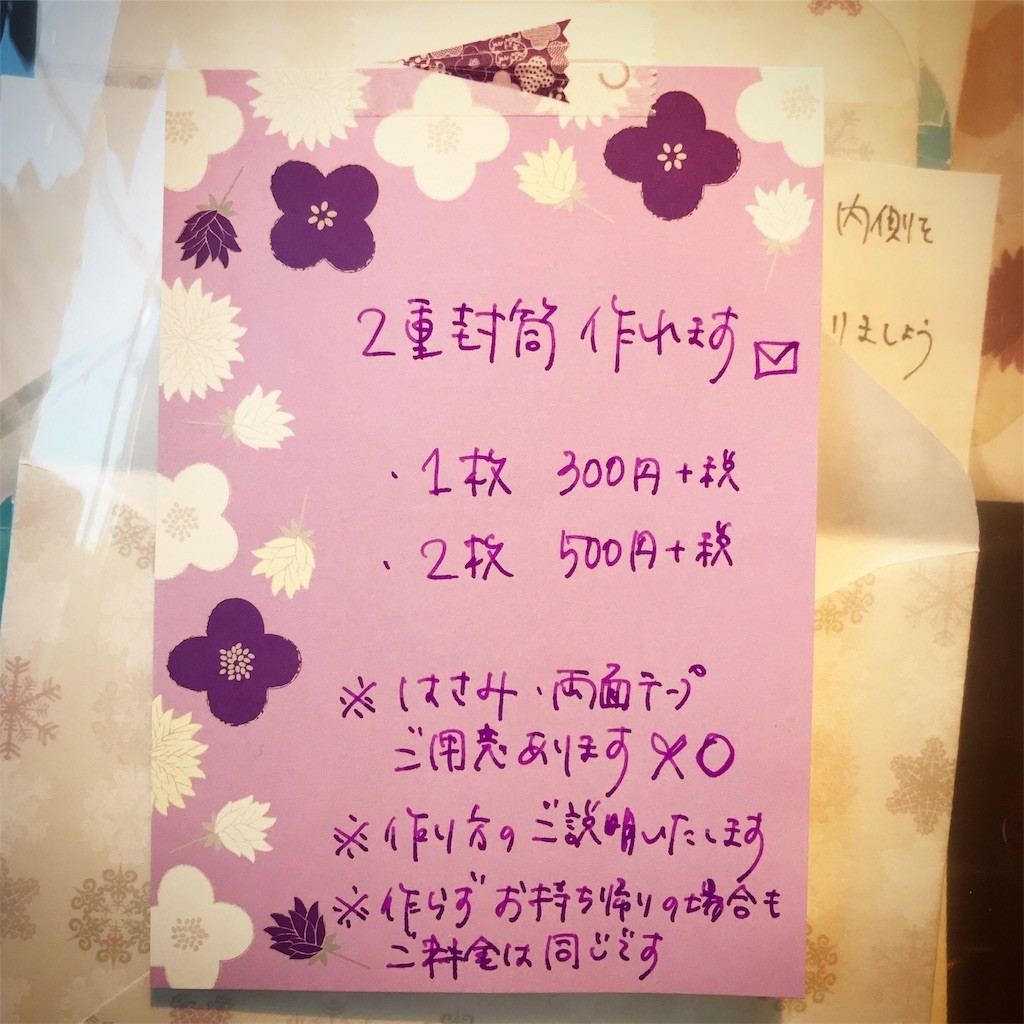 2重封筒 作れます
・1枚 300円+税
・2枚 500円+税
※はさみ・両面テープ
ご用意あります
※作り方のご説明いたします
※作らずお持ち帰りの場合も
ご料金は同じです
内側を
りましょう